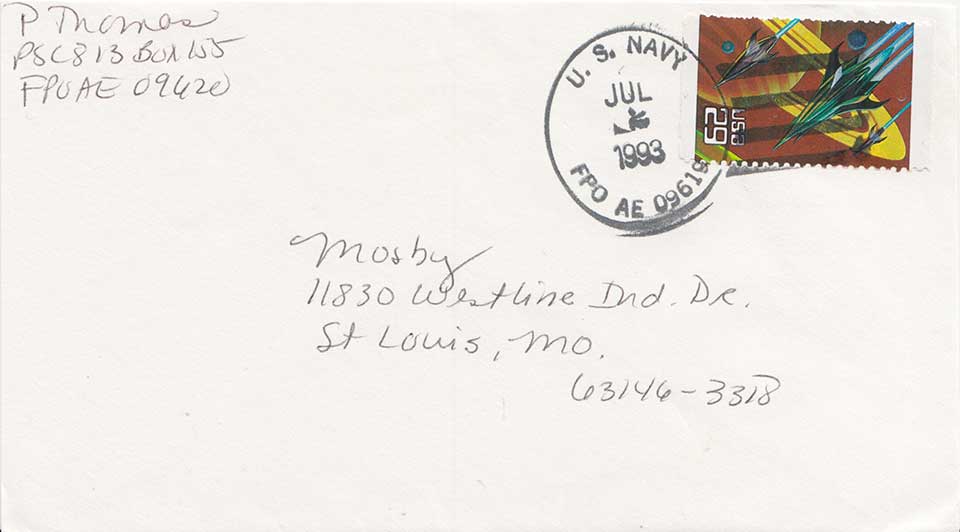 P Thomas
PSC 813 BOX 155
FPO AE 09620
U. S. NAVY
JUL
1993
FPO AE 09619
29
USA
Mosby
11830 Westline Ind. Dr.
St Louis, Mo.
63146-3318